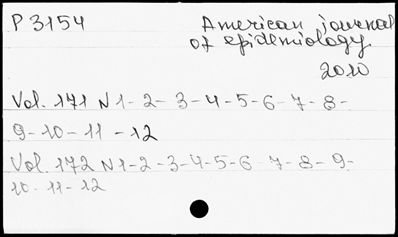 P 3154 American journal
of epidemiology
2010
Vol. 171 N 1-2-3-4-5-6-7-8-
9-10-11-12
Vol. 172 N 1-2-3-4-5-6-7-8-9-
10-11-12